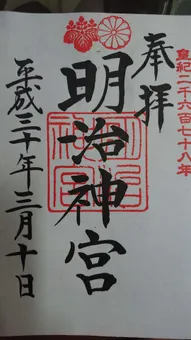 皇紀二千六百七十八年
奉拝
明治神宮
平成三十年三月十日